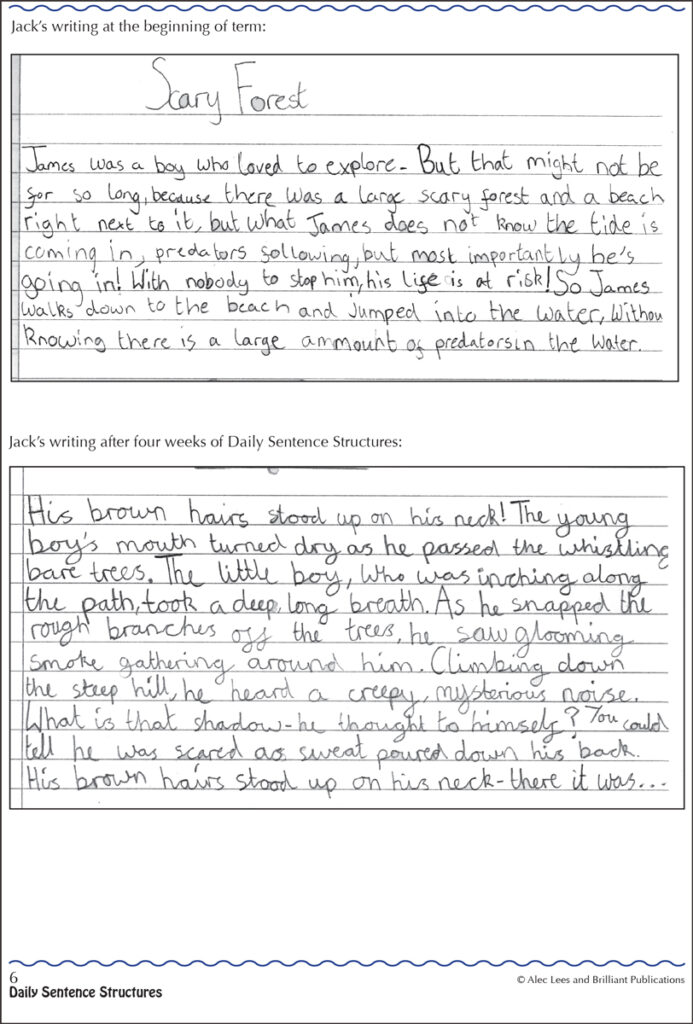 Jack's writing at the beginning of term:
Scary Forest
James was a boy who loved to explore- But that might not be
for so long, because there was a large scary forest and a beach
right next to it, but what James does not know the tide is
coming in, predators following, but most importantly he's
going in! With nobody to stop him, his life is at risk! So James
walks down to the beach and jumped into the water, Withou
Knowing there is a large ammount of predators in the water.
Jack's writing after four weeks of Daily Sentence Structures:
His brown hairs stood up on his neck! The young
boy's mouth turned dry as he passed the whistling
bare trees. The little boy, who was inching along
the path, took a deep, long breath. As he snapped the
rough branches off the trees, he saw glooming
smoke gathering around him. Climbing down
the steep hill, he heard a creepy, mysterious noise.
What is that shadow-he thought to himself? You could
tell he was scared as sweat poured down his back.
His brown hairs stood up on his neck-there it was...
6
Daily Sentence Structures
© Alec Lees and Brilliant Publications